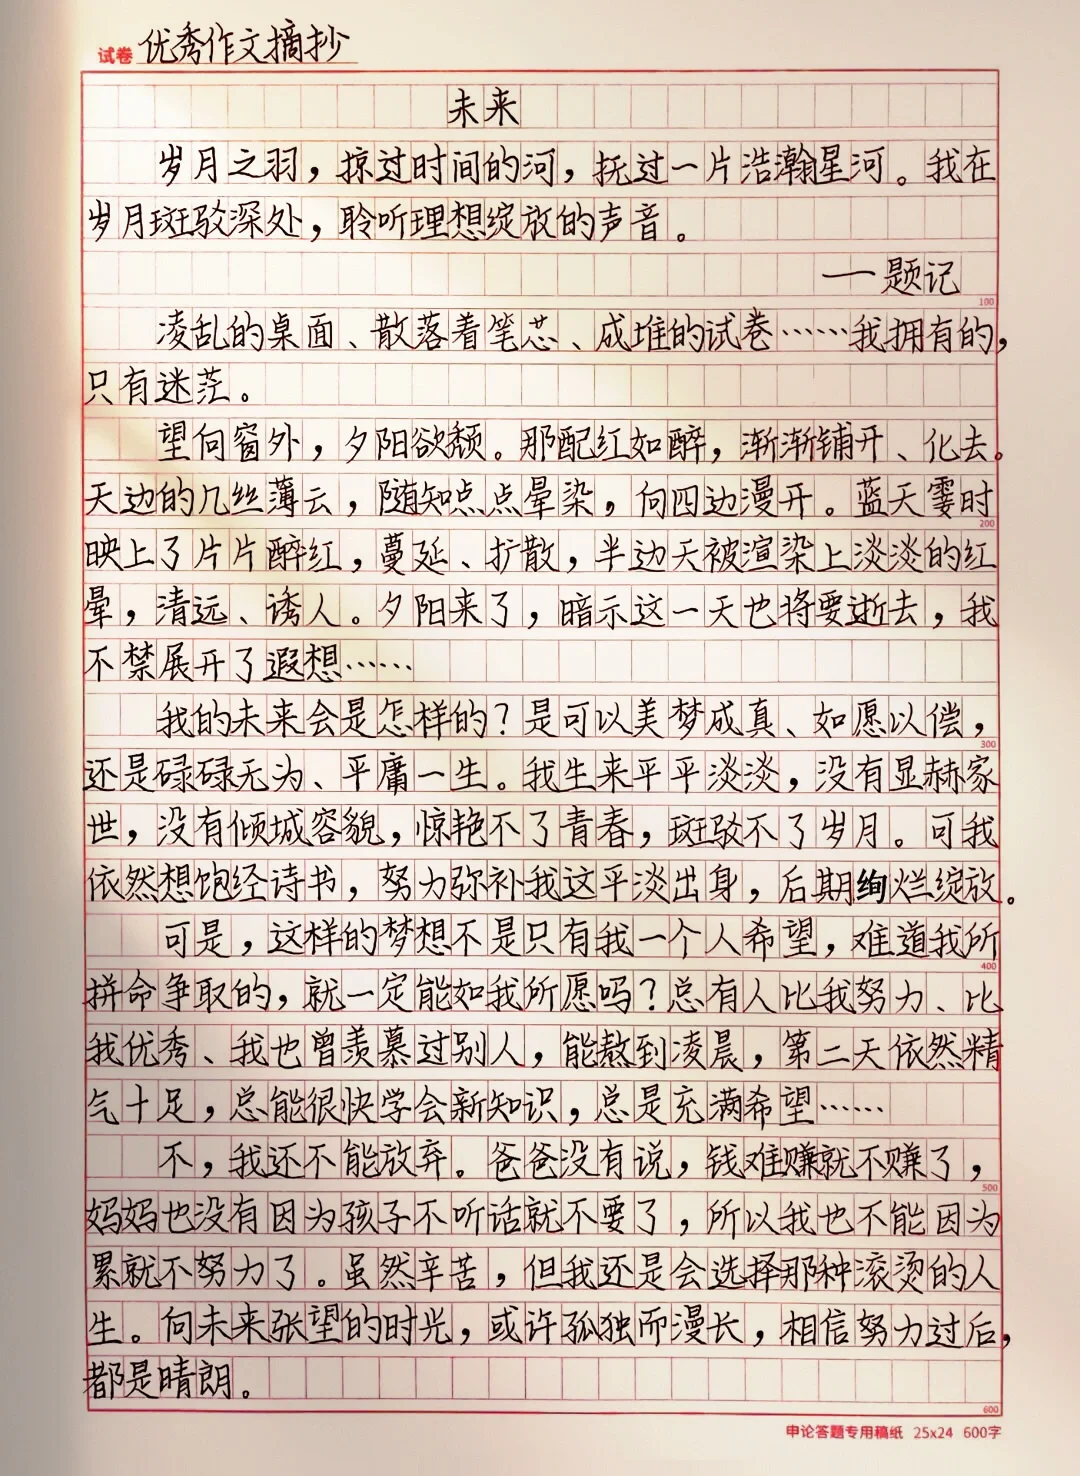 试卷 优秀作文摘抄
未来
岁月之羽，掠过时间的河，抚过一片浩瀚星河。我在
岁月斑驳深处，聆听理想绽放的声音。
——题记
100
凌乱的桌面、散落着笔芯、成堆的试卷……我拥有的，
只有迷茫。
望向窗外，夕阳欲颓。那酡红如醉，渐渐铺开、化去。
天边的几丝薄云，随知点点晕染，向四边漫开。蓝天霎时
200
映上了片片醉红，蔓延、扩散，半边天被渲染上淡淡的红
晕，清远、诱人。夕阳来了，暗示这一天也将要逝去，我
不禁展开了遐想……
我的未来会是怎样的？是可以美梦成真、如愿以偿，
300
还是碌碌无为、平庸一生。我生来平平淡淡，没有显赫家
世，没有倾城容貌，惊艳不了青春，斑驳不了岁月。可我
依然想饱经诗书，努力弥补我这平淡出身，后期绚烂绽放。
可是，这样的梦想不是只有我一个人希望，难道我所
400
拼命争取的，就一定能如我所愿吗？总有人比我努力、比
我优秀、我也曾羡慕过别人，能熬到凌晨，第二天依然精
气十足，总能很快学会新知识，总是充满希望……
不，我还不能放弃。爸爸没有说，钱难赚就不赚了，
500
妈妈也没有因为孩子不听话就不要了，所以我也不能因为
累就不努力了。虽然辛苦，但我还是会选择那种滚烫的人
生。向未来张望的时光，或许孤独而漫长，相信努力过后，
都是晴朗。
600
申论答题专用稿纸 25x24 600字